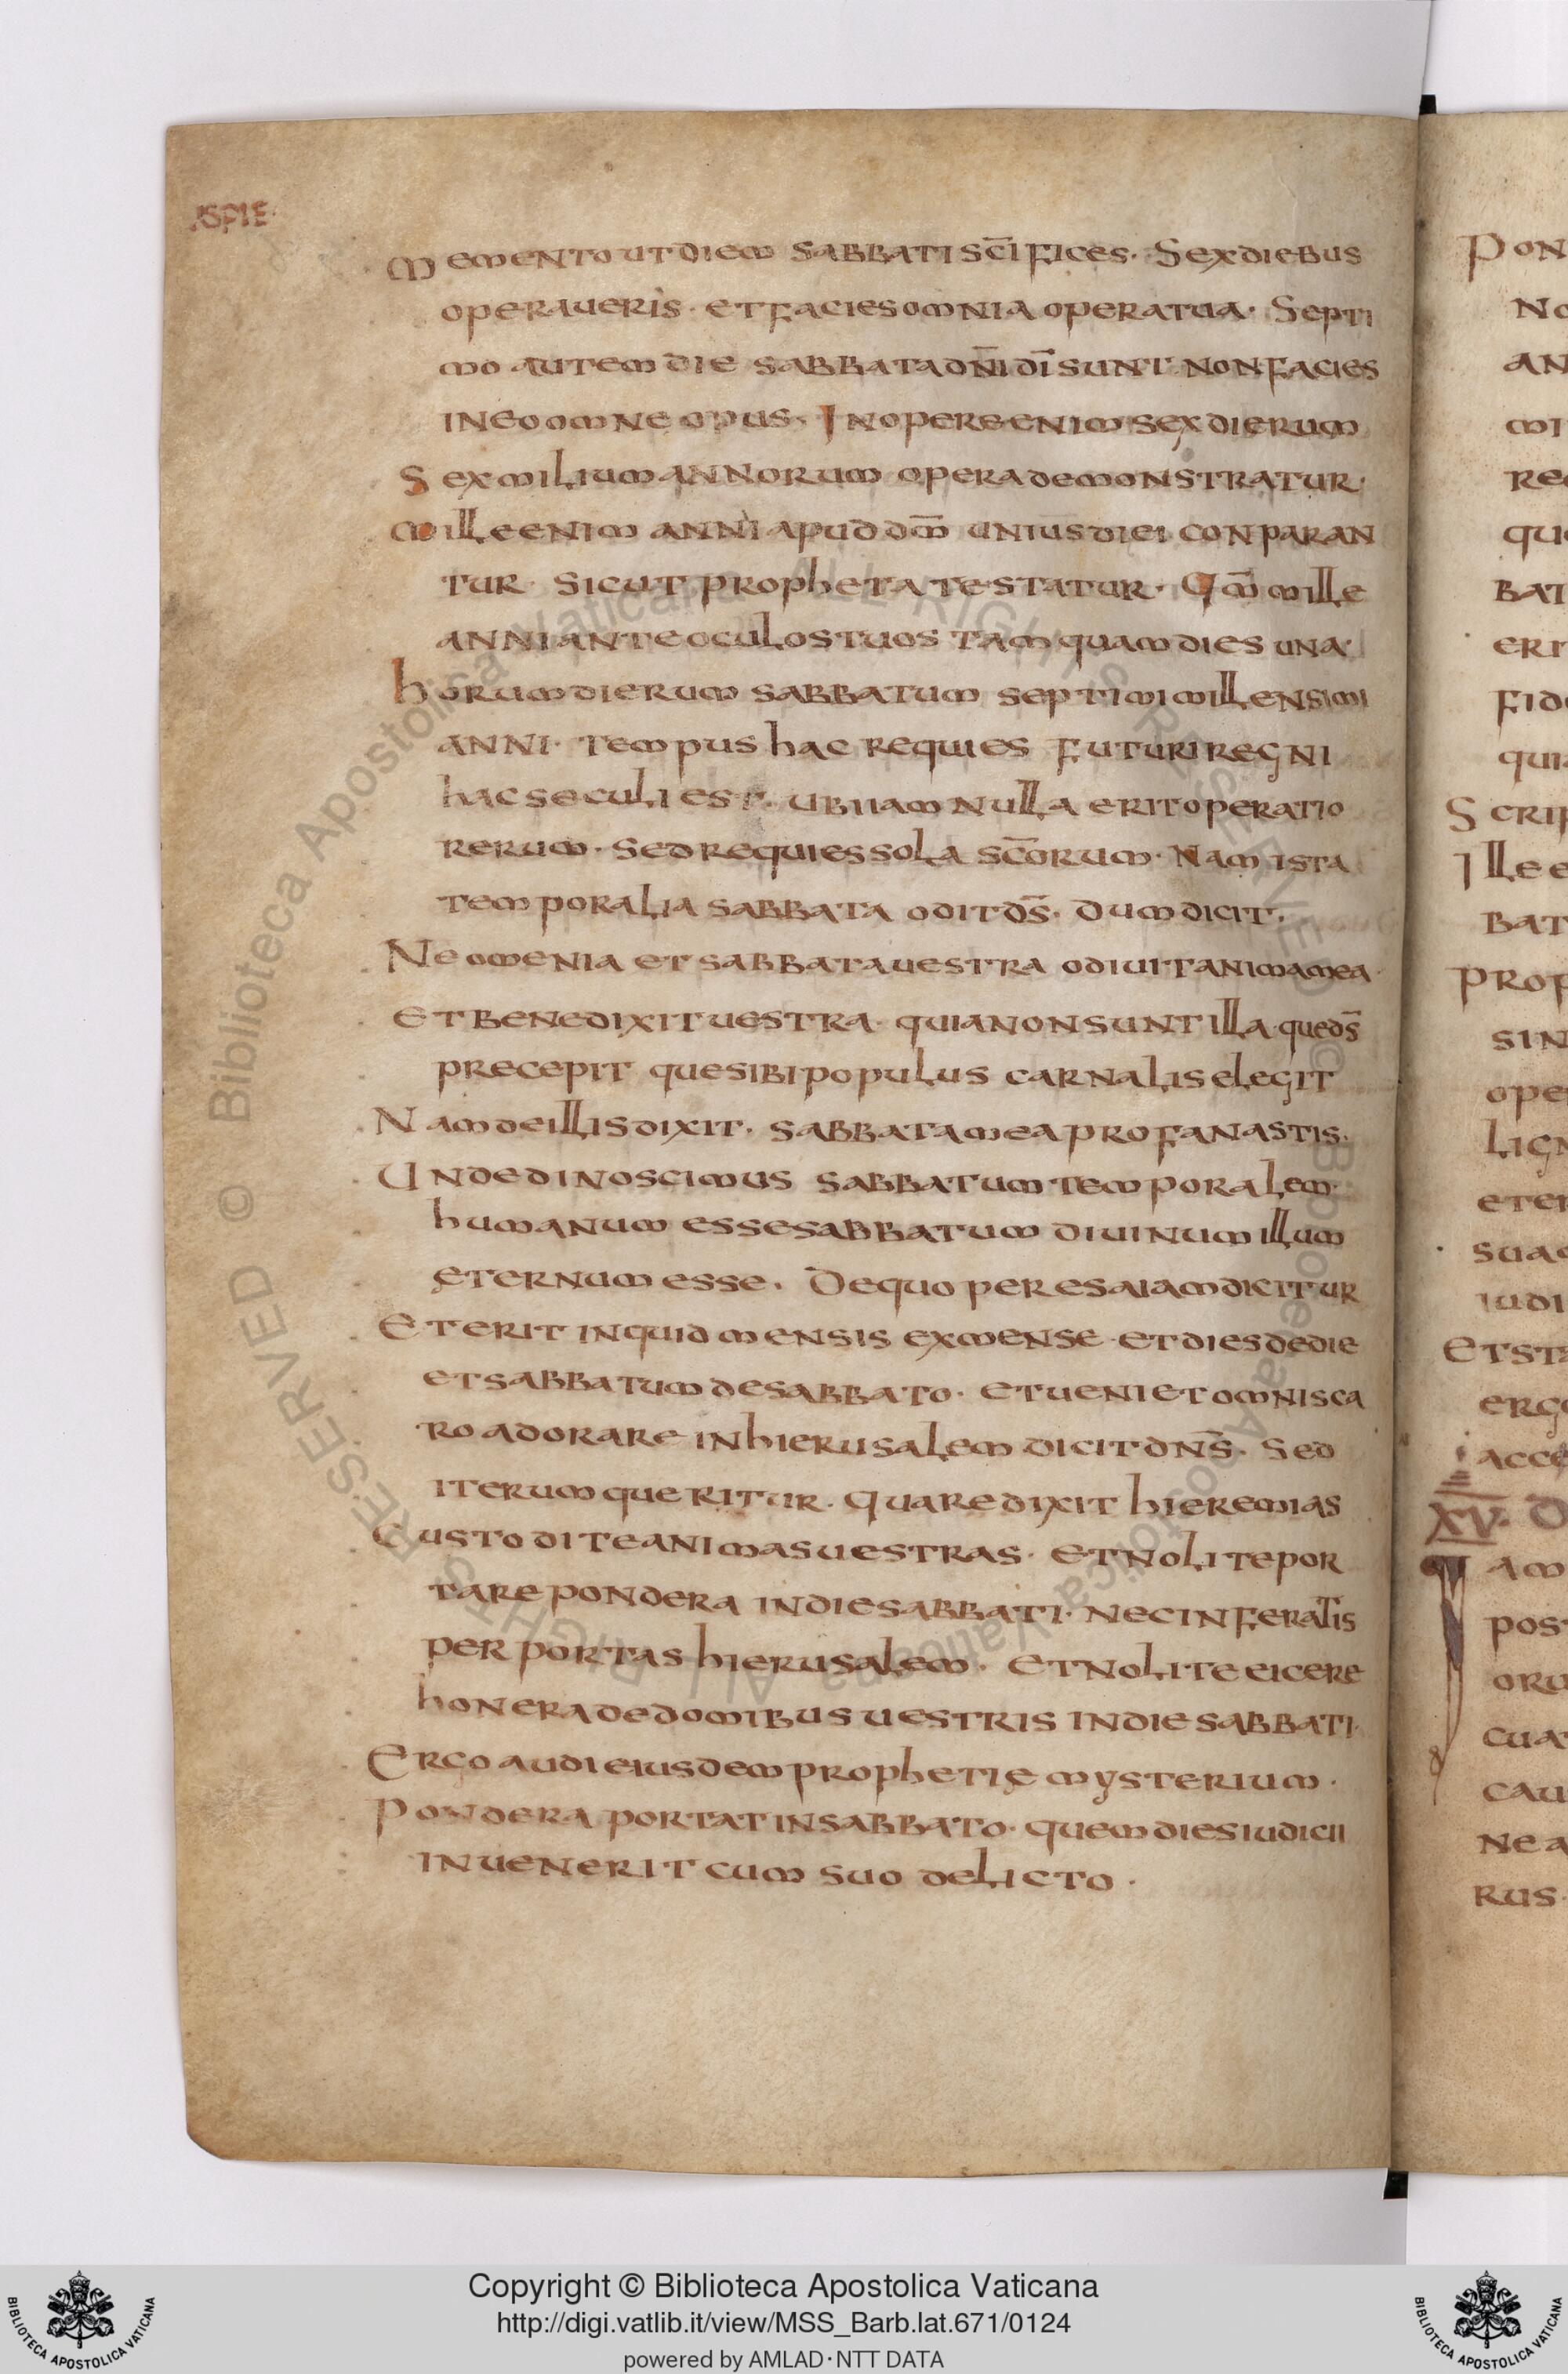 ISPIE·
Memento ut diem sabbati sc̄ifices· Sex diebus
operaueris· et facies omnia opera tua· Septi
mo autem die sabbata dn̄i dī sunt non facies
in eo omne opus· In opere enim sex dierum
Sex milium annorum opera demonstratur·
Mille enim anni apud dm̄ unius diei conparan
tur· sicut propheta testatur· Qm̄ mille
anni ante oculos tuos tam quam dies una·
horum dierum sabbatum septimi millensimi
anni· tempus hac requies futuri regni
hac seculi est· ubi iam nulla erit operatio
rerum· sed requies sola sc̄orum· Nam ista
temporalia sabbata odit ds̄· Dum dicit·
Neomenia et sabbata uestra odiuit anima mea·
Et benedixit uestra· quia non sunt illa que ds̄
precepit que sibi populus carnalis elegit
Nam de illis dixit· sabbata mea profanastis·
Unde dinoscimus sabbatum temporalem·
humanum esse sabbatum diuinum illum
eternum esse· De quo per esaiam dicitur
Et erit inquid mensis ex mense et dies de die
et sabbatum de sabbato· et ueniet omnis ca
ro adorare in hierusalem dicit dns̄· Sed
iterum queritur· quare dixit hieremias
Custodite animas uestras· et nolite por
tare pondera in die sabbati· nec inferatis
per portas hierusalem· et nolite eicere
honera de domibus uestris in die sabbati·
Ergo audi eiusdem prophetię mysterium·
Pondera portat in sabbato· quem dies iudicii
inuenerit cum suo delicto·
Pon
no
an
mi
re
qu
bat
eri
fid
qui
Scrip
Ille e
bat
prop
sin
ope
lign
eter
sua
iudi
et st
erg
acce
XV· D
am
pos
oru
cua
cau
ne a
rus·
© Biblioteca Apostolica Vaticana ALL RIGHTS RESERVED © Biblioteca Apostolica Vaticana ALL RIGHTS RESERVED
Copyright © Biblioteca Apostolica Vaticana
http://digi.vatlib.it/view/MSS_Barb.lat.671/0124
powered by AMLAD·NTT DATA
BIBLIOTECA APOSTOLICA VATICANA
BIBLIOTECA APOSTOLICA VATICANA